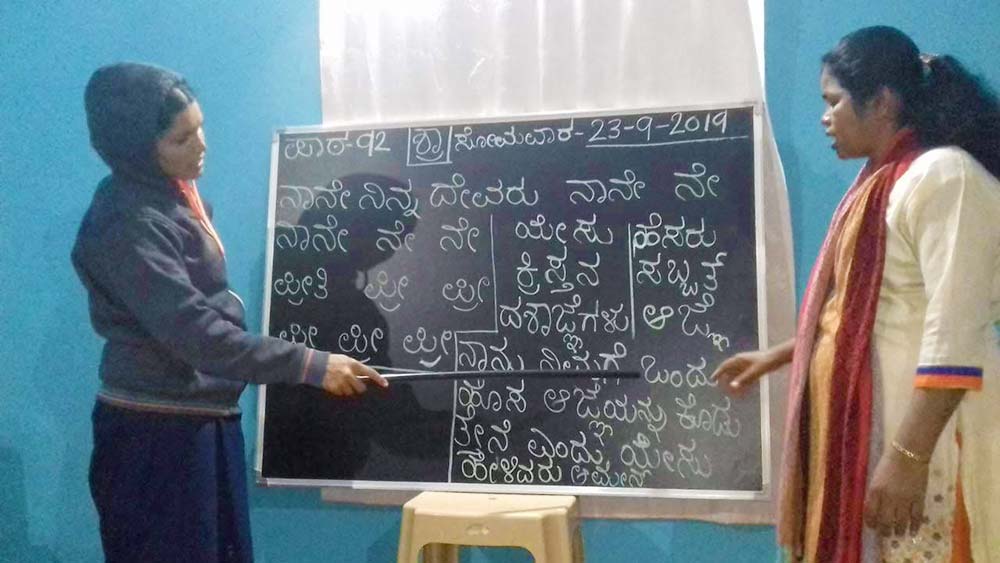 ಪಾಠ-92 ಶ್ರಾ ಸೋಮವಾರ-23-9-2019
ನಾನೇ ನಿನ್ನ ದೇವರು ನಾನೇ ನೇ
ನಾನೇ ನೇ ನೇ
ಪ್ರೀತಿ ಪ್ರೀ ಪ್ರೀ
ಪ್ರೀ ಪ್ರೀ ಪ್ರೀ
ಯೇಸು
ಕ್ರಿಸ್ತನ
ದಶಾಜ್ಞೆಗಳು
ಹೆಸರು
ಸಬ್ಬತ್
ಆಜ್ಞೆ
ನಾನು ನಿಮಗೆ ಒಂದು
ಹೊಸ ಆಜ್ಞೆಯನ್ನು ಕೊಡು
ತ್ತೇನೆ ಎಂದು ಯೇಸು
ಹೇಳಿದರು ಆಮೇನ್